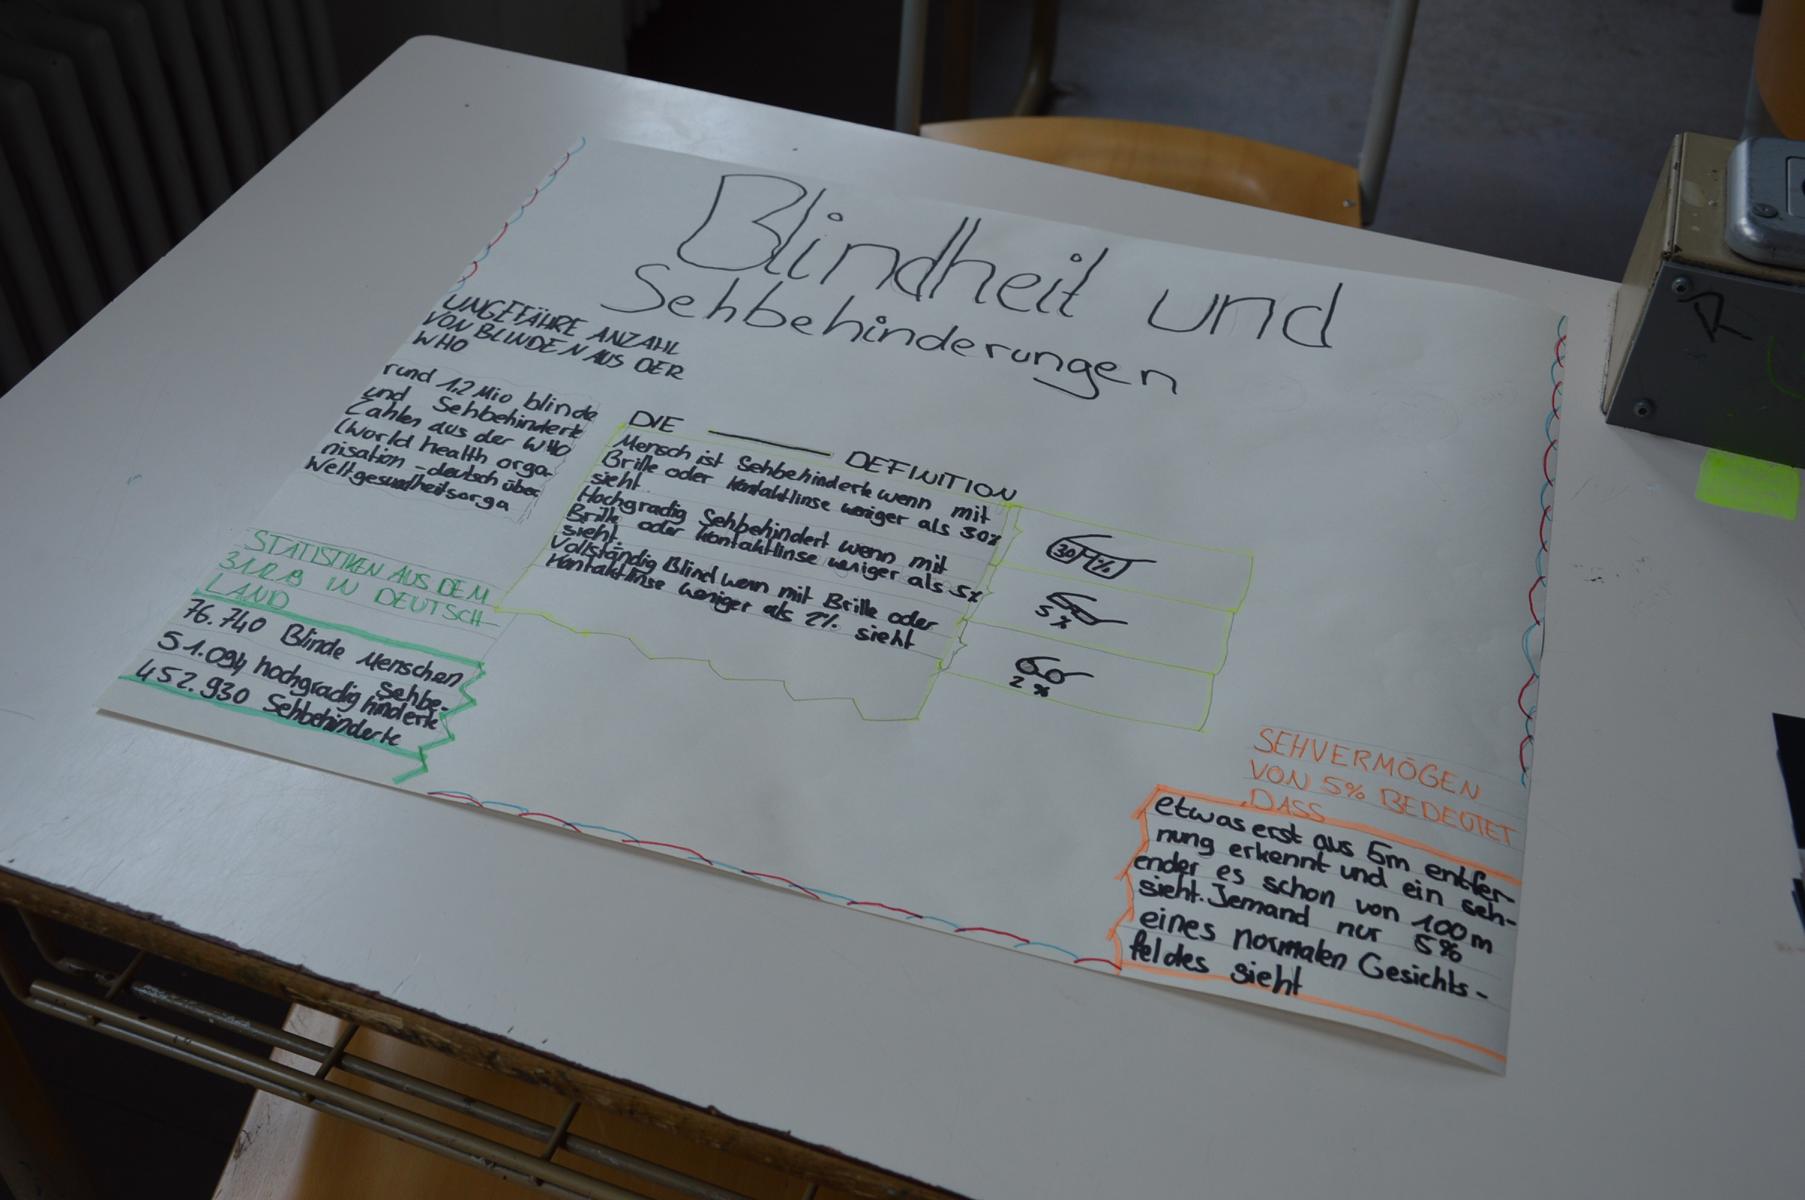 Blindheit und
Sehbehinderungen
UNGEFÄHRE ANZAHL
VON BLINDEN AUS DER
WHO
rund 1,2 Mio blinde
und Sehbehinderte
Zahlen aus der WHO
(World health orga-
nisation - deutsch über
Weltgesundheitsorga
STATISTIKEN AUS DEM
31.12.13 IN DEUTSCH-
LAND
76.740 Blinde Menschen
51.094 hochgradig Sehbe-
hinderte
452.930 Sehbehinderte
DIE DEFINITION
Mensch ist Sehbehindert wenn mit
Brille oder Kontaktlinse weniger als 30%
sieht.
Hochgradig Sehbehindert wenn mit
Brille oder Kontaktlinse weniger als 5%
sieht.
Vollständig Blind wenn mit Brille oder
Kontaktlinse weniger als 2% sieht
30 %
5 %
2 %
SEHVERMÖGEN
VON 5% BEDEUTET
DASS
etwas erst aus 5m entfer-
nung erkennt und ein seh-
ender es schon von 100m
sieht. Jemand nur 5%
eines normalen Gesichts-
feldes sieht